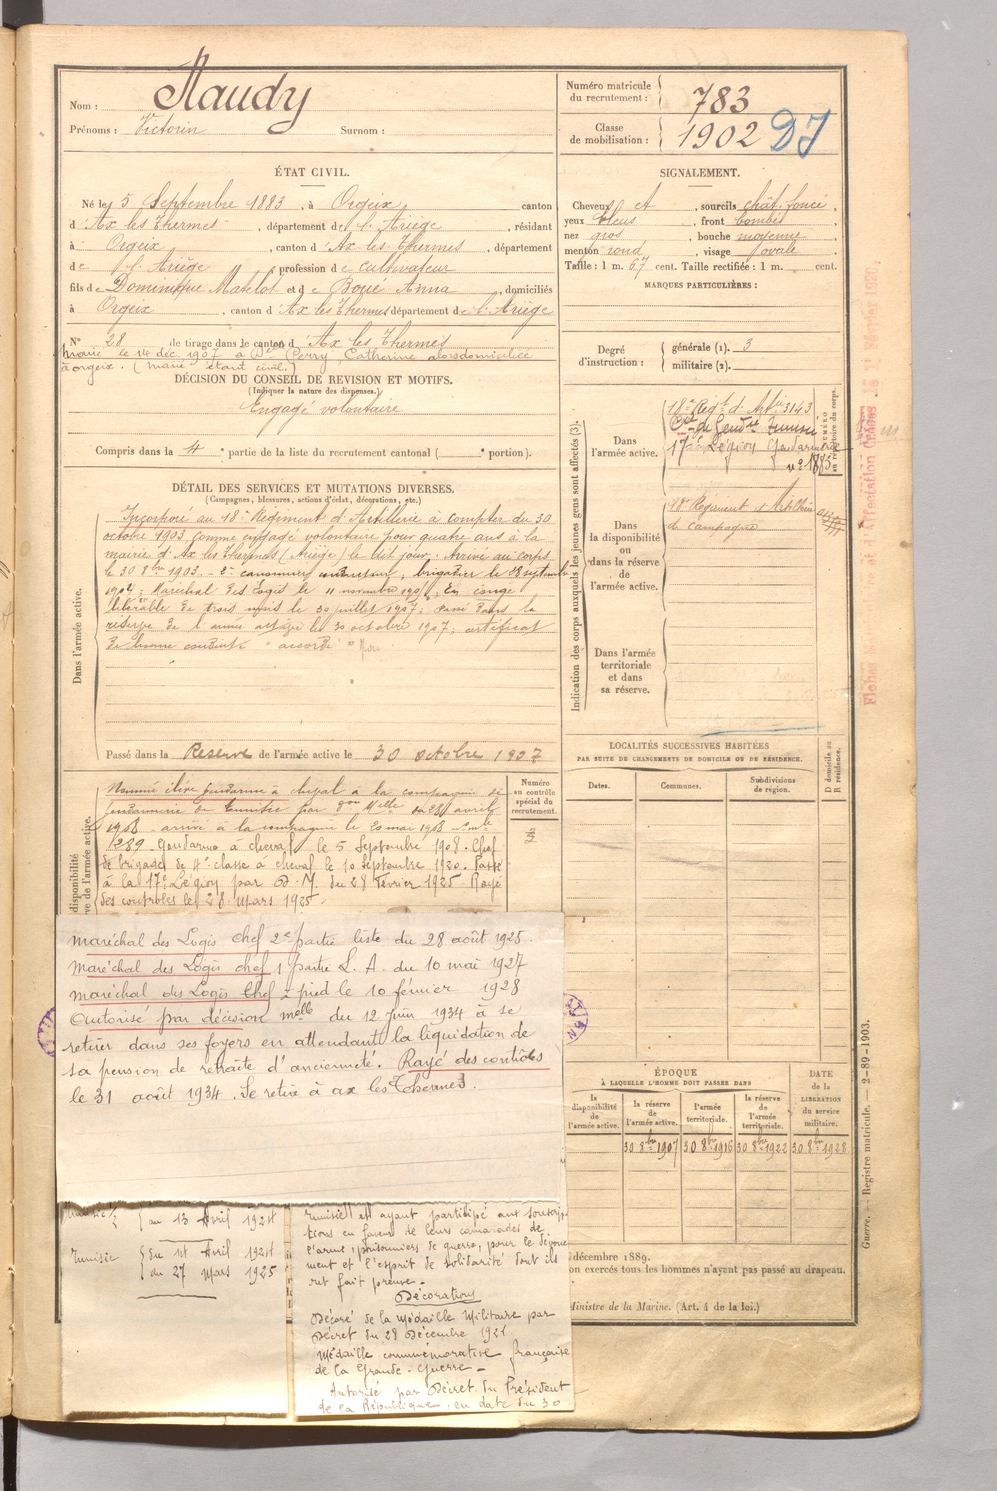 Nom :
Prénoms : Victorin Surnom :
Numéro matricule du recrutement : 783
Classe de mobilisation : 1902
ÉTAT CIVIL.
Né le 5 Septembre 1883, à Orgeix, canton
d'Ax les Thermes, département de l'Ariège, résidant
à Orgeix, canton d'Ax les Thermes, département
de l'Ariège, profession de cultivateur
fils de Dominique Matelot et de Boué Anna, domiciliés
à Orgeix, canton d'Ax les Thermes département de l'Ariège
N° 28 de tirage dans le canton d'Ax les Thermes
Marié le 14 déc. 1907 à Dlle Perry Catherine alors domiciliée
à orgeix. (marié étant civil.)
DÉCISION DU CONSEIL DE REVISION ET MOTIFS.
(Indiquer la nature des dispenses.)
Engagé volontaire
Compris dans la 4e partie de la liste du recrutement cantonal ( e portion).
SIGNALEMENT.
Cheveux et, sourcils chât. foncé
yeux bleus, front bombé
nez gros, bouche moyenne
menton rond, visage ovale
Taille : 1 m. 67 cent. Taille rectifiée : 1 m. cent.
MARQUES PARTICULIÈRES :
Degré d'instruction : générale (1). 3
militaire (2).
DÉTAIL DES SERVICES ET MUTATIONS DIVERSES.
(Campagnes, blessures, actions d'éclat, décorations, etc.)
Dans l'armée active.
Incorporé au 18e Régiment d'Artillerie à compter du 30
octobre 1903 comme engagé volontaire pour quatre ans à la
mairie d'Ax les Thermes (Ariège) le dit jour. Arrivé au corps
le 30 8bre 1903. 2e canonnier conducteur, brigadier le 28 septembre
1904; Maréchal des Logis le 11 novembre 1905. En congé
libérable de trois mois le 30 juillet 1907; Passé dans la
réserve de l'armée active le 30 octobre 1907; certificat
de bonne conduite "accordé"
Passé dans la Réserve de l'armée active le 30 Octobre 1907
Indication des corps auxquels les jeunes gens sont affectés (3).
Dans l'armée active.
18e Régt d'Artie 3143
Cie de Gendie Tunisie
17e Légion Gendarmerie
n° 1875
NUMÉRO au répertoire du corps.
Dans la disponibilité ou dans la réserve de l'armée active.
18e Régiment d'Artillerie
de campagne
Dans l'armée territoriale et dans sa réserve.
disponibilité
ve de l'armée active.
Nommé élève gendarme à cheval à la compagnie de
gendarmerie de Tunisie par don Mlle du 28 avril
1908 arrivé à la compagnie le 20 mai 1908
1289. Gendarme à cheval le 5 Septembre 1908. Chef
de brigade de 4e classe à cheval le 10 Septembre 1920. Passé
à la 17e Légion par D. M. du 28 Février 1925. Rayé
des contrôles le 28 Mars 1925.
Numéro au contrôle spécial du recrutement.
maréchal des Logis chef 2e partie liste du 28 août 1925.
Maréchal des Logis chef 1 partie L. A. du 10 mai 1927
maréchal des Logis Chef à pied le 10 février 1928
Autorisé par décision melle du 12 Juin 1934 à se
retirer dans ses foyers en attendant la liquidation de
sa pension de retraite d'ancienneté. Rayé des contrôles
le 31 août 1934. Se retire à ax les Thermes.
au 13 Avril 1921
Tunisie du 1er Avril 1921
au 27 Mars 1925
Tunisie) et ayant participé aux souscrip
tions en faveur de leurs camarades de
l'arme, prisonniers de guerre, pour le dévoue
ment et l'esprit de solidarité dont ils
ont fait preuve.
Décorations
Décoré de la Médaille Militaire par
Décret du 28 Décembre 1921
Médaille commémorative française
de la Grande-Guerre
Autorisé par Décret du Président
de la République, en date du 30
LOCALITÉS SUCCESSIVES HABITÉES
PAR SUITE DE CHANGEMENTS DE DOMICILE OU DE RÉSIDENCE.
Dates. Communes. Subdivisions de région. D domicile ou R résidence.
ÉPOQUE
À LAQUELLE L'HOMME DOIT PASSER DANS
la disponibilité de l'armée active.
la réserve de l'armée active.
l'armée territoriale.
la réserve de l'armée territoriale.
DATE de la LIBÉRATION du service militaire.
30 8bre 1907 30 8bre 1916 30 8bre 1922 30 8bre 1928
décembre 1889.
on exercés tous les hommes n'ayant pas passé au drapeau.
Ministre de la Marine. (Art. 4 de la loi.)
Guerre. — Registre matricule. — 2-89-1903.